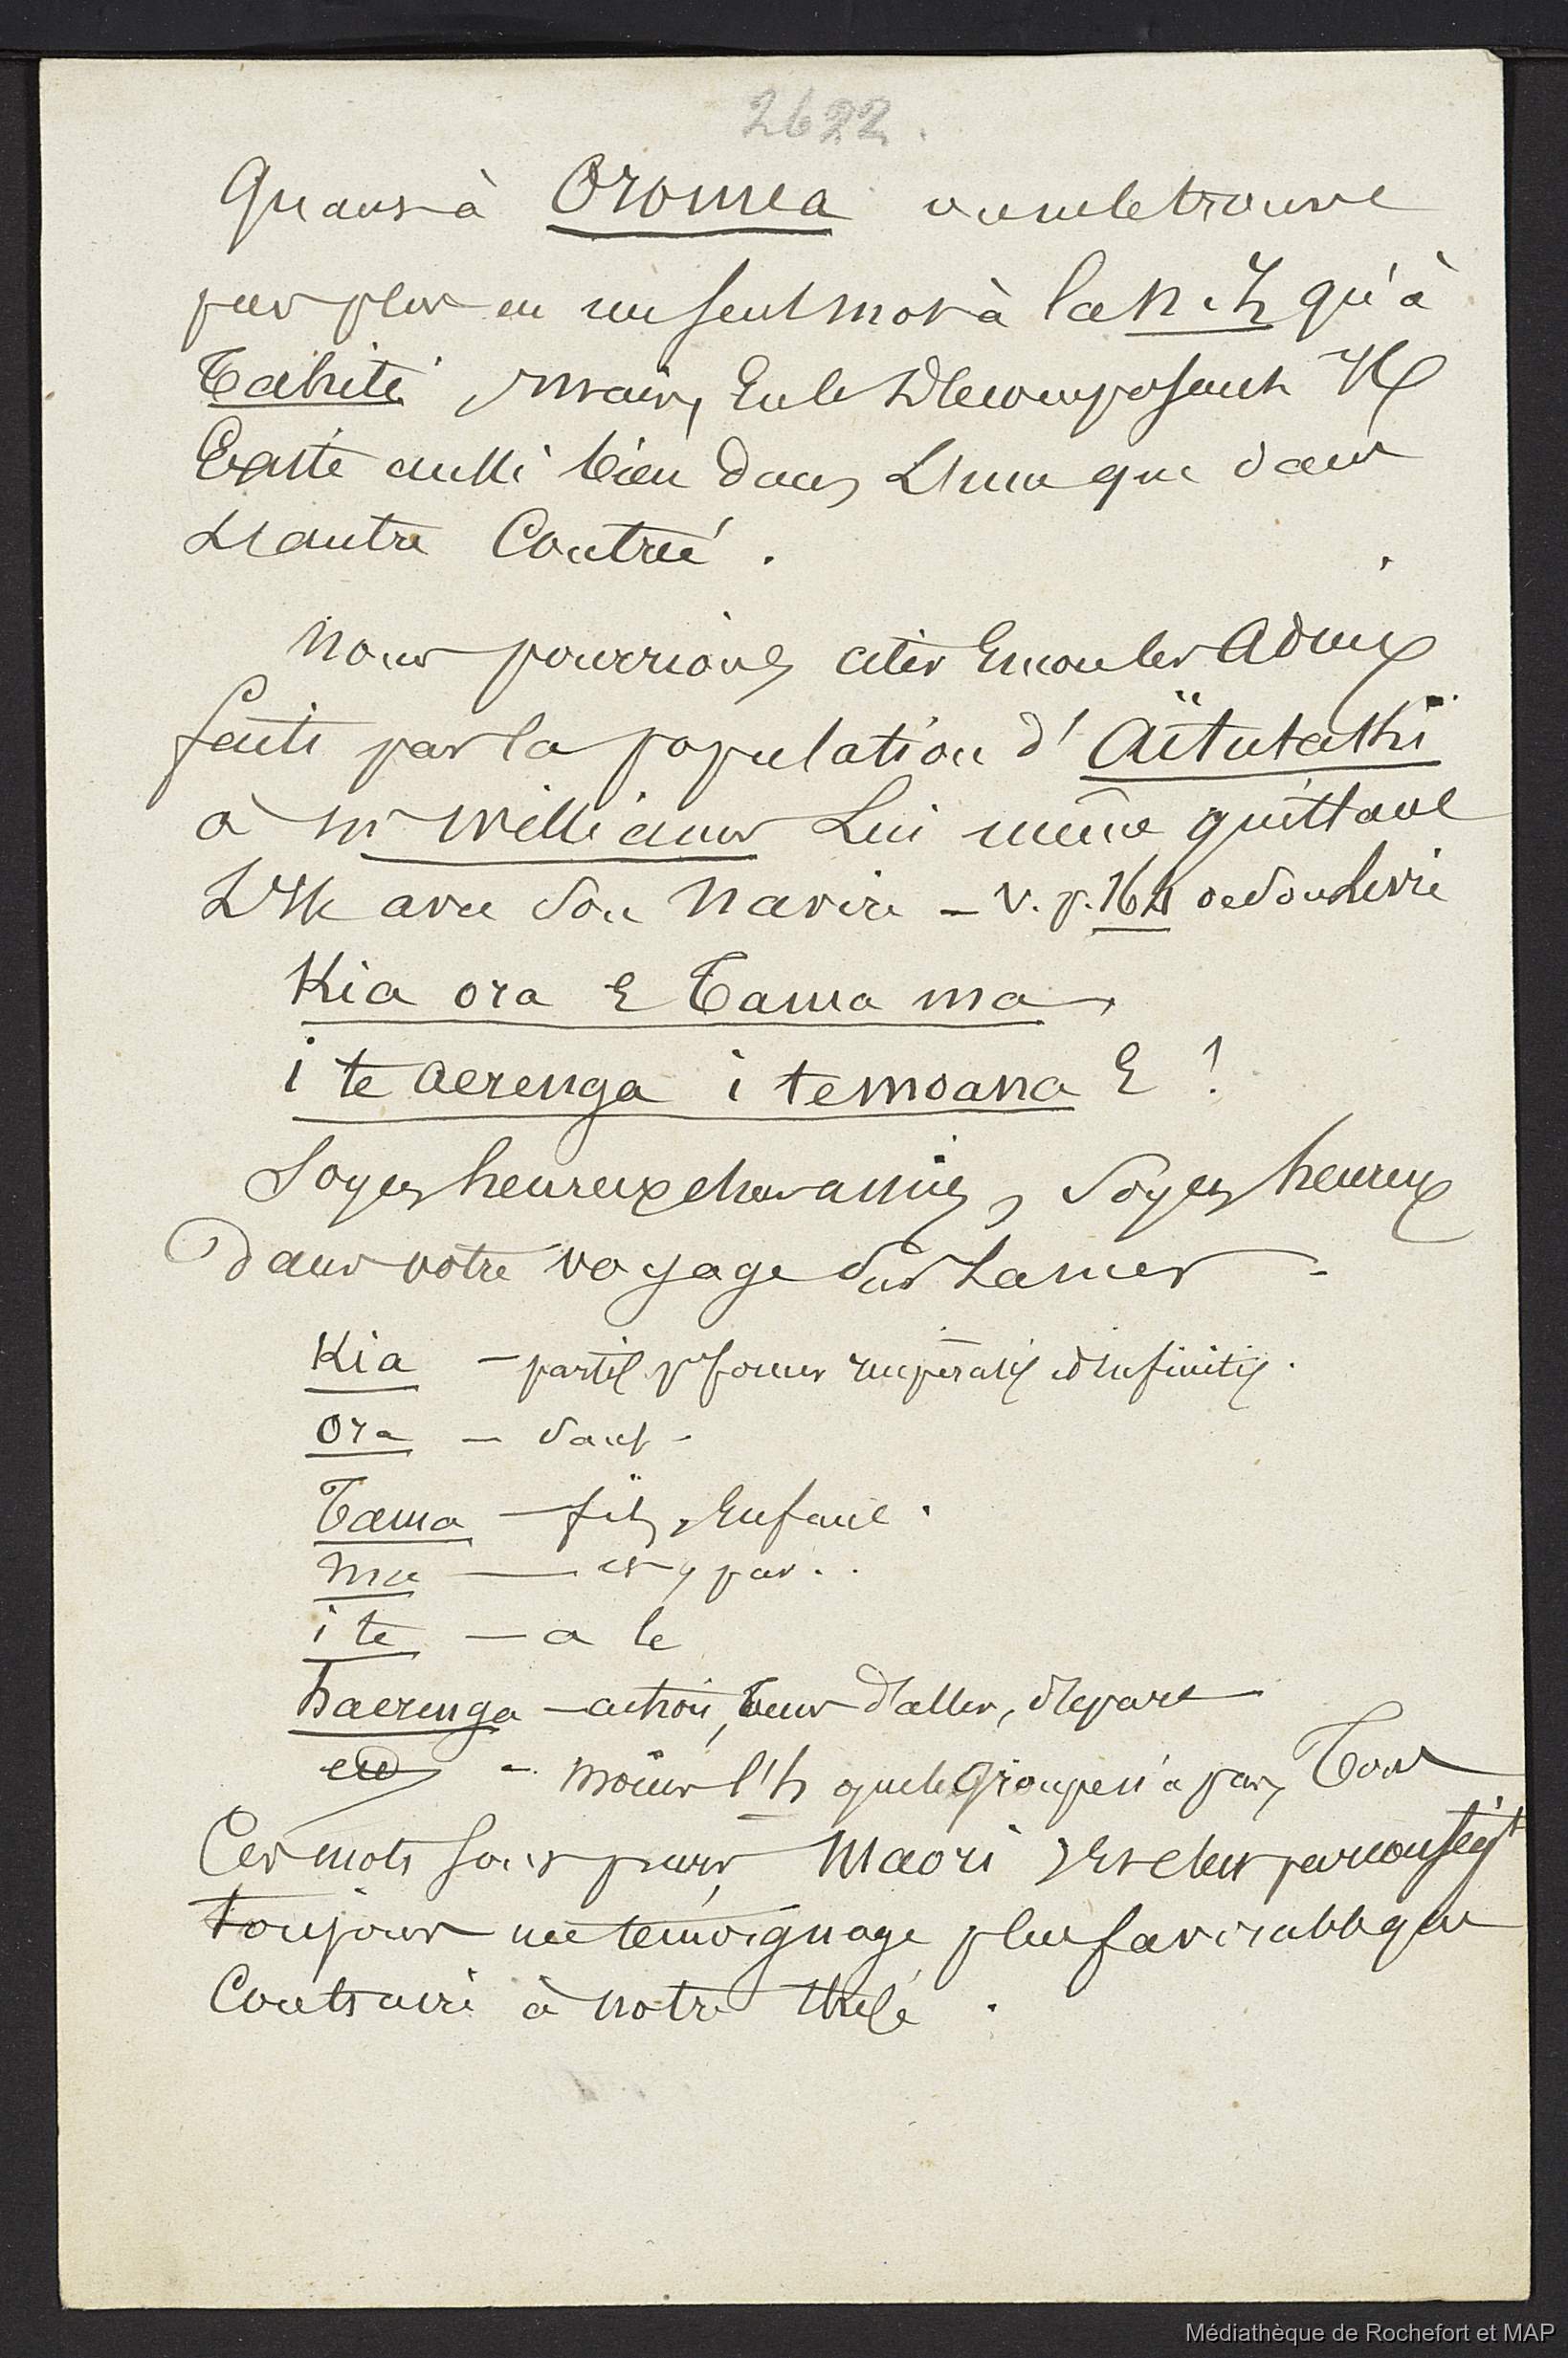 2622.
Quant à Oromea on ne le trouve
pas plus en un seul mot à la N. Z qu'à
Tahiti, mais, en le décomposant il
existe aussi bien dans l'une que dans
l'autre contrée.
Nous pourrions citer encore les adieux
faits par la population d'Aïtutaki
à Mr Williams lui même quittant
l'île avec son navire – V. p. 164 de son livre
Kia ora E Tama ma,
i te aerenga i te moana E !
Soyez heureux chers amis, soyez heureux
dans votre voyage sur la mer –
Kia – partic. pr former impératif et infinitif.
ora – sauf –
Tama – fils, enfant.
ma – et, par..
i te – a le
haerenga – action, d'aller, départ
– moins l'h que le groupe n'a pas, Tous
ces mots sont purs Maori, et c'est par conséqt
toujours un témoignage plus favorable que
contraire à notre thèse.
Médiathèque de Rochefort et MAP